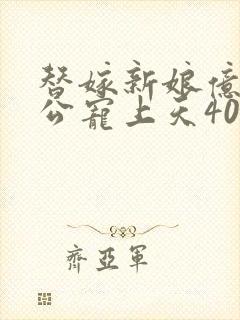 替嫁新娘億
公寵上天40
齊亞軍